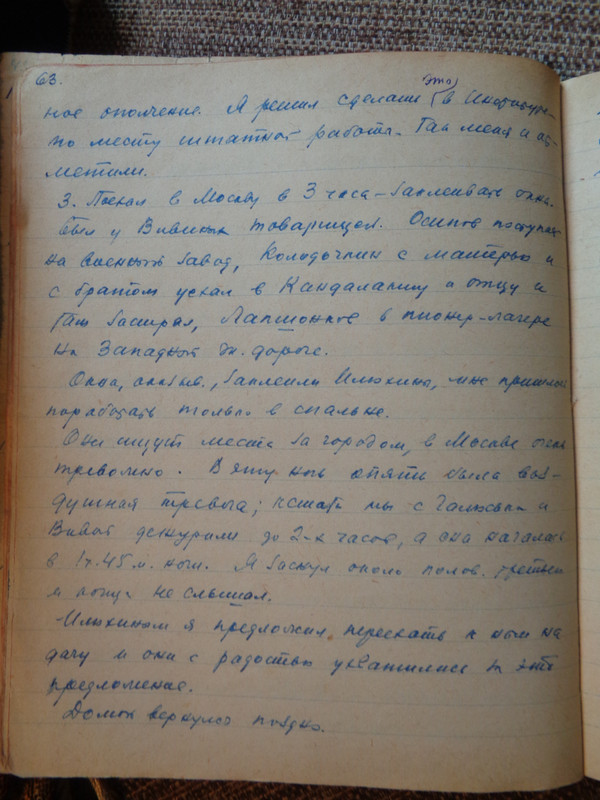 63.
ное ополчение. Я решил сделать (это) в
по месту штатной работы. Там меня и от-
метили.
3. Поехал в Москву в 3 часа – заклеивать окна.
Был у Вивиных товарищей. Осипов поступает
на военный завод, Колодочкин с матерью и
с братом уехал в Кандалакшу к отцу и
там застрял, Лапшонков в пионер-лагере
на Западной ж. дороге.
Окна, оказыв., заклеили Илюхины, мне пришлось
поработать только в спальне.
Они ищут места за городом, в Москве очень
тревожно. В эту ночь опять была воз-
душная тревога; кстати мы с Галюськой и
Вивой дежурили до 2-х часов, а она началась
в 1 ч. 45 м. ночи. Я заснул около полов. третьего
и ничего не слышал.
Илюхиным я предложил переехать к нам на
дачу и они с радостью ухватились за это
предложение.
Домой вернулся поздно.